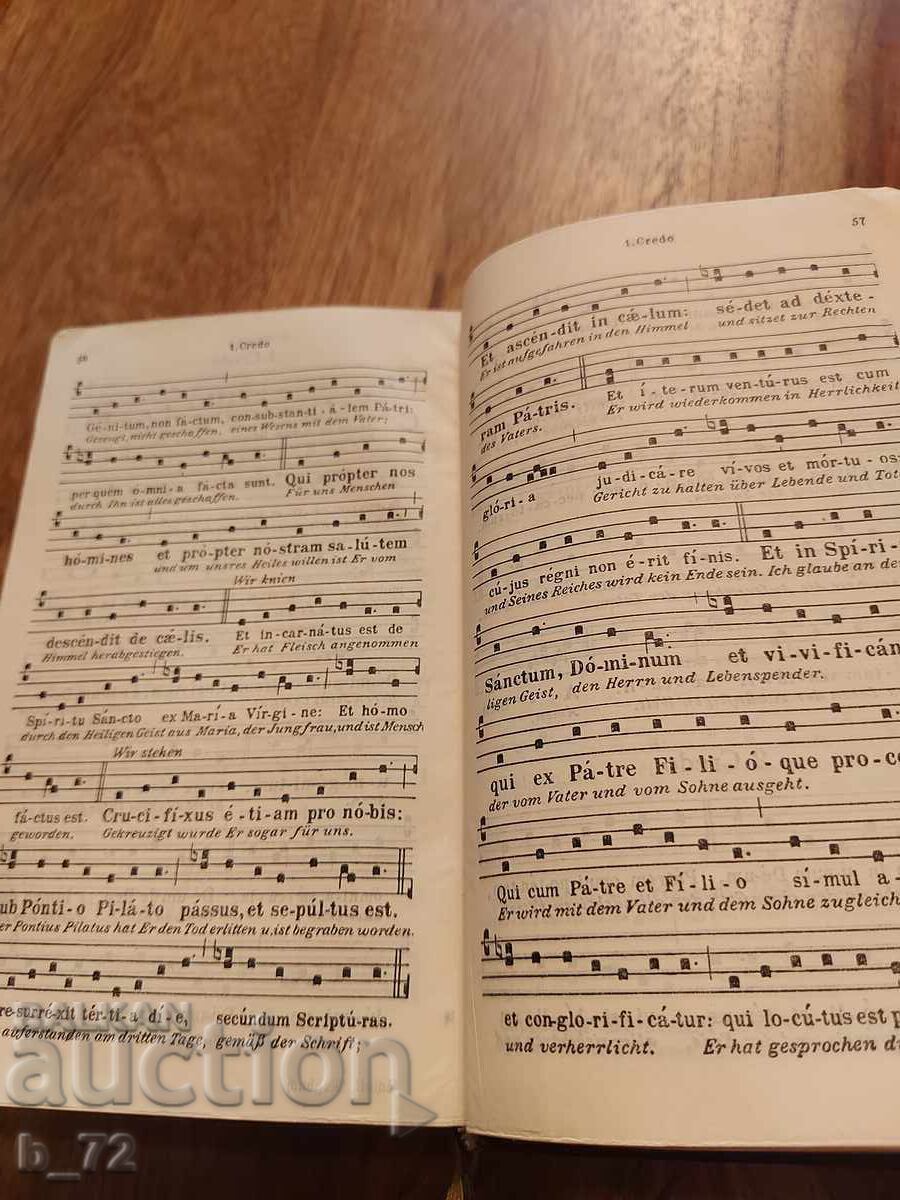 1. Credo
Génitum, non fáctum, con-sub-stan-ti-á-lem Pátri:
Gezeugt, nicht geschaffen, eines Wesens mit dem Vater;
per quem ó-mni-a fácta sunt. Qui própter nos
durch Ihn ist alles geschaffen. Für uns Menschen
hó-mi-nes et pró-pter nóstram sa-lú-tem
und um unsres Heiles willen ist Er vom
Wir knien
descén-dit de cǽ-lis. Et in-car-ná-tus est de
Himmel herabgestiegen. Er hat Fleisch angenommen
Spí-ri-tu Sán-cto ex Ma-rí-a Vír-gi-ne: Et hó-mo
durch den Heiligen Geist aus Maria, der Jungfrau, und ist Mensch
Wir stehen
fá-ctus est. Cru-ci-fí-xus é-ti-am pro nó-bis:
geworden. Gekreuzigt wurde Er sogar für uns.
ub Pónti-o Pi-lá-to pássus, et se-púl-tus est.
er Pontius Pilatus hat Er den Tod erlitten u. ist begraben worden.
re-sur-ré-xit tér-ti-a dí-e, secúndum Scriptú-ras.
auferstanden am dritten Tage, gemäß der Schrift;
57
1. Credo
Et ascén-dit in cǽ-lum: sé-det ad déxte-
Er ist aufgefahren in den Himmel und sitzet zur Rechten
ram Pá-tris. Et í-te-rum ven-tú-rus est cum
des Vaters. Er wird wiederkommen in Herrlichkeit
gló-ri-a ju-di-cá-re ví-vos et mór-tu-os:
Gericht zu halten über Lebende und Tot
cú-jus régni non é-rit fí-nis. Et in Spí-ri-
und Seines Reiches wird kein Ende sein. Ich glaube an de
Sánctum, Dó-mi-num et vi-vi-fi-cán
ligen Geist, den Herrn und Lebenspender.
qui ex Pá-tre Fi-li-ó-que pro-cé
der vom Vater und vom Sohne ausgeht.
Qui cum Pá-tre et Fí-li-o sí-mul a-
Er wird mit dem Vater und dem Sohne zugleich
et con-glo-ri-fi-cá-tur: qui lo-cú-tus est p
und verherrlicht. Er hat gesprochen d
BALKAN
auction
b_72